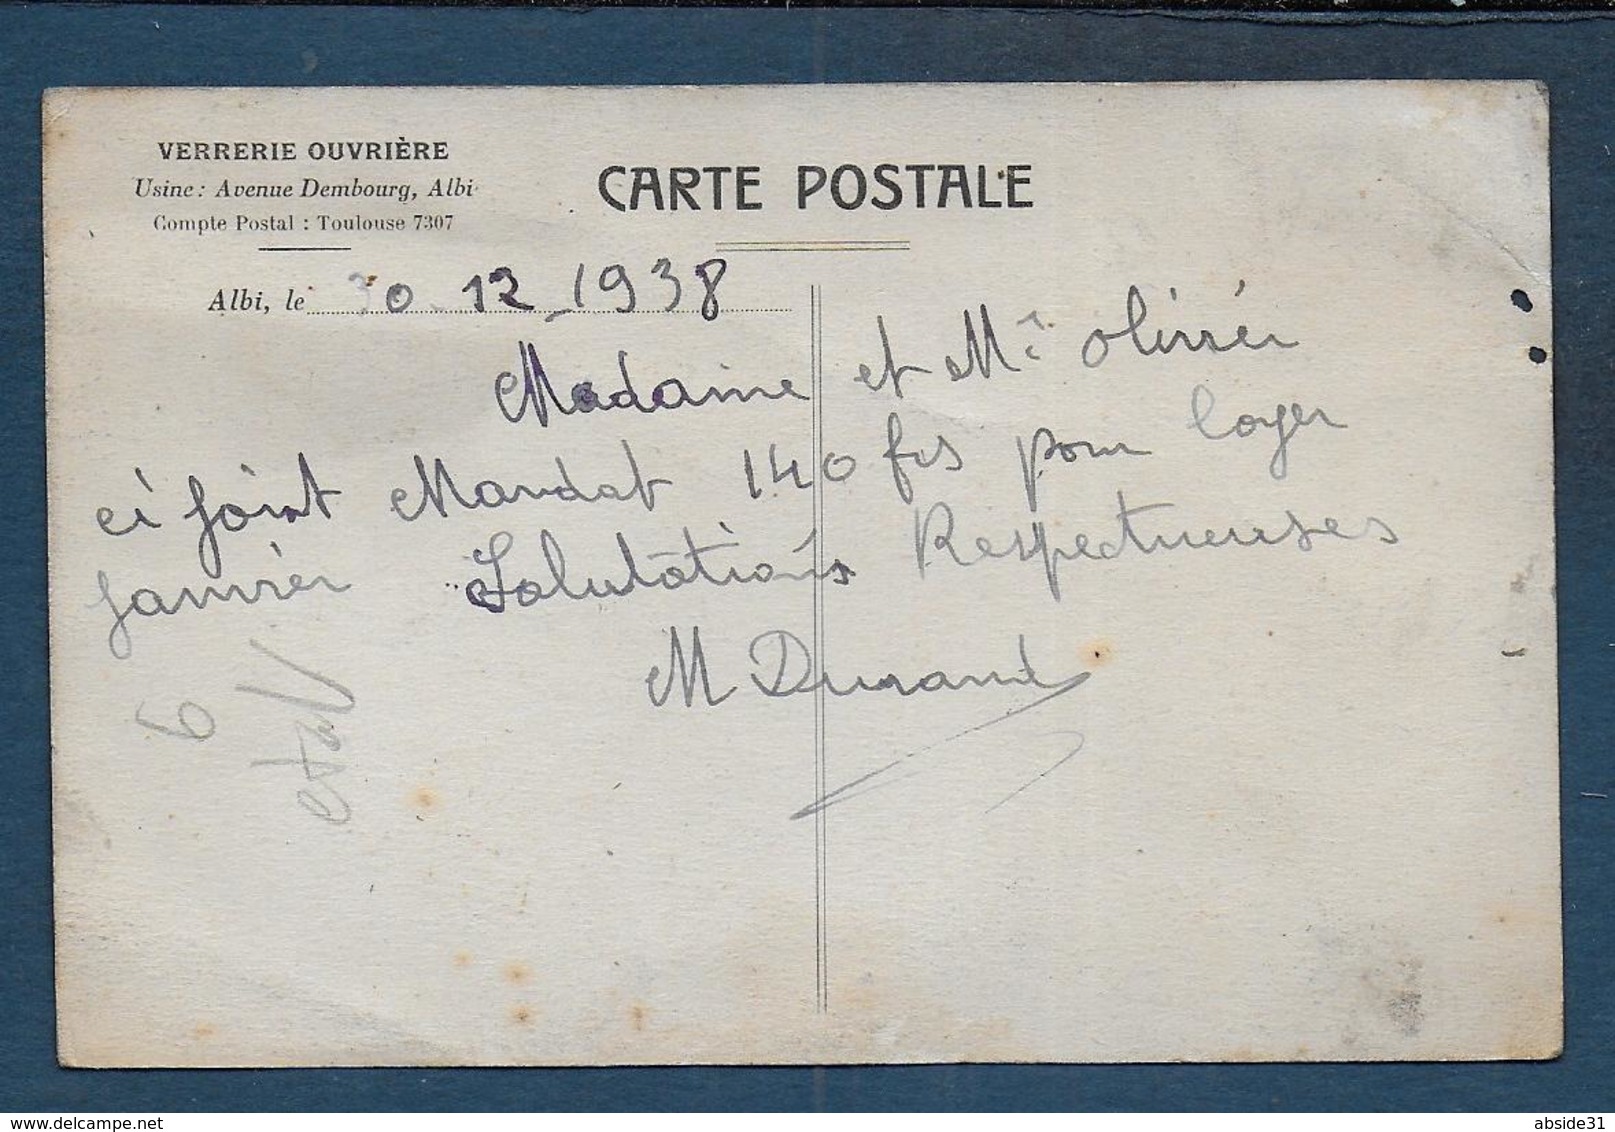 VERRERIE OUVRIÈRE
Usine : Avenue Dembourg, Albi
Compte Postal : Toulouse 7307
CARTE POSTALE
Albi, le 30-12-1938
Madame et Mr Olivier
ci joint Mandat 140 frs pour loyer
Janvier Salutations Respectueuses
M Durand
6
www.delcampe.net
abside31